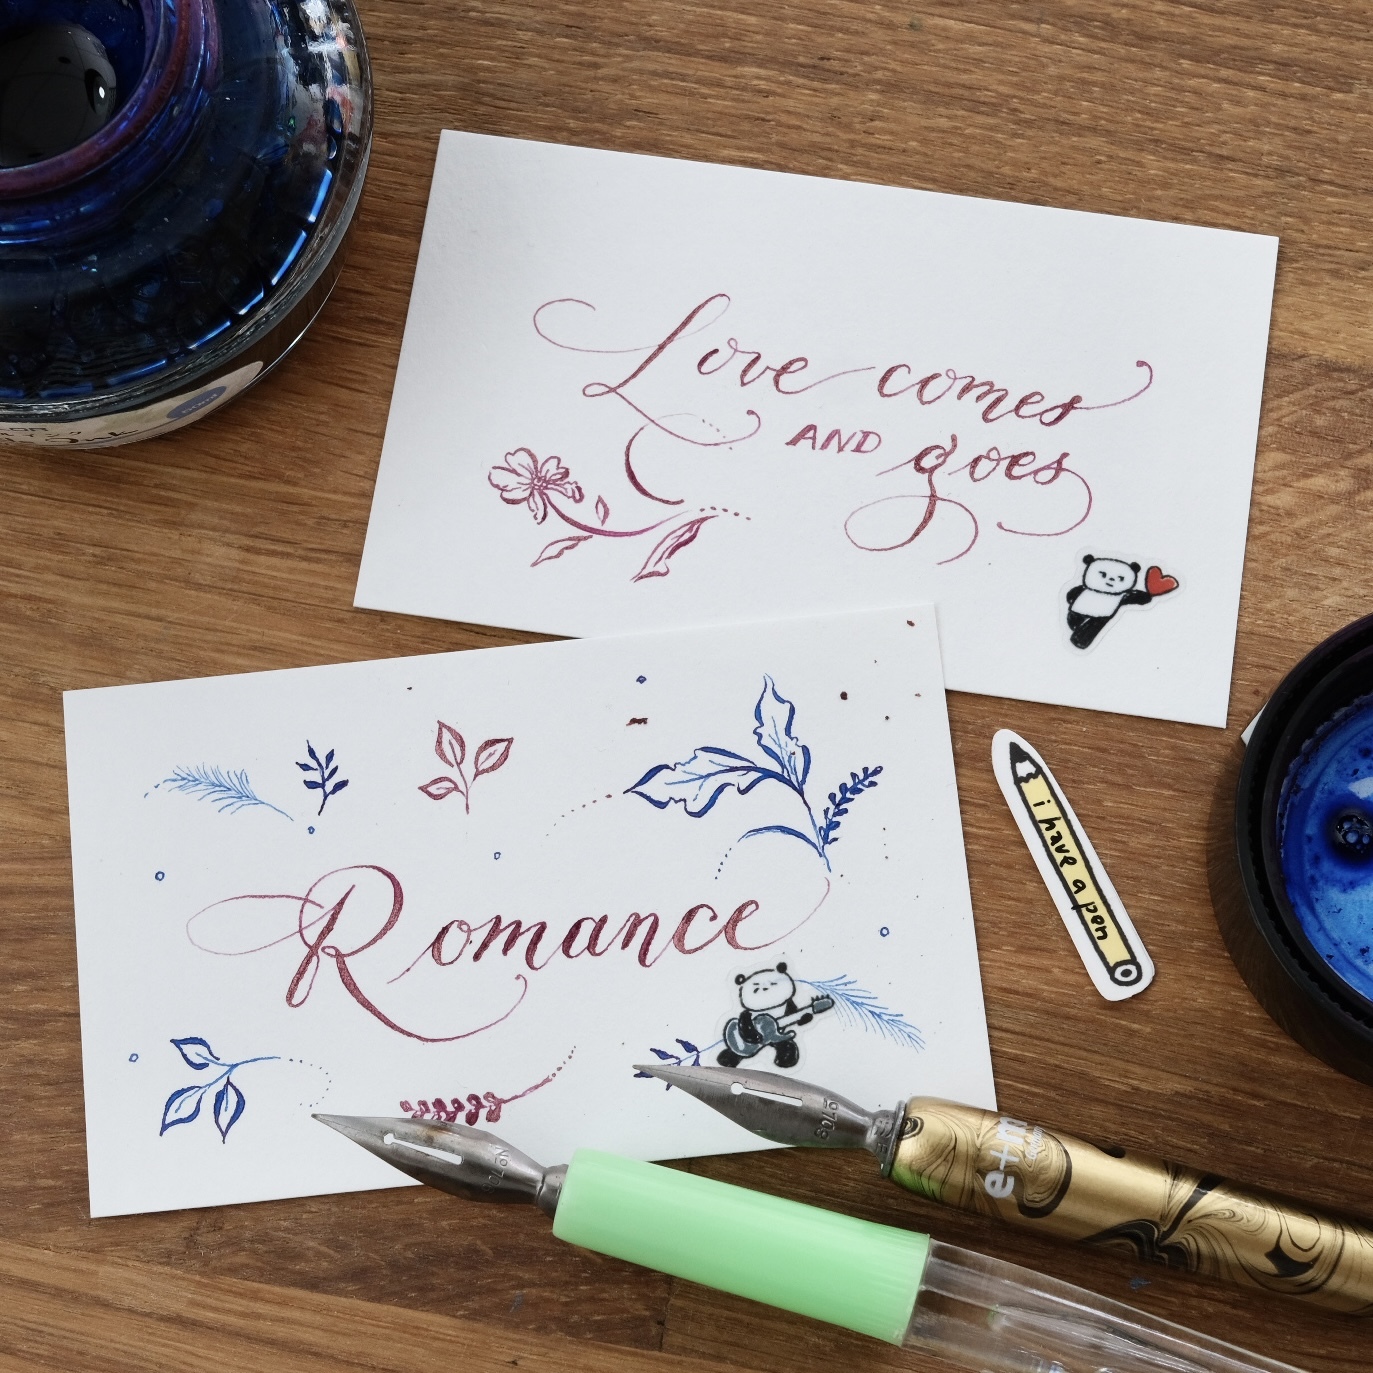 Love comes
AND goes
Romance
i have a pen
e+m